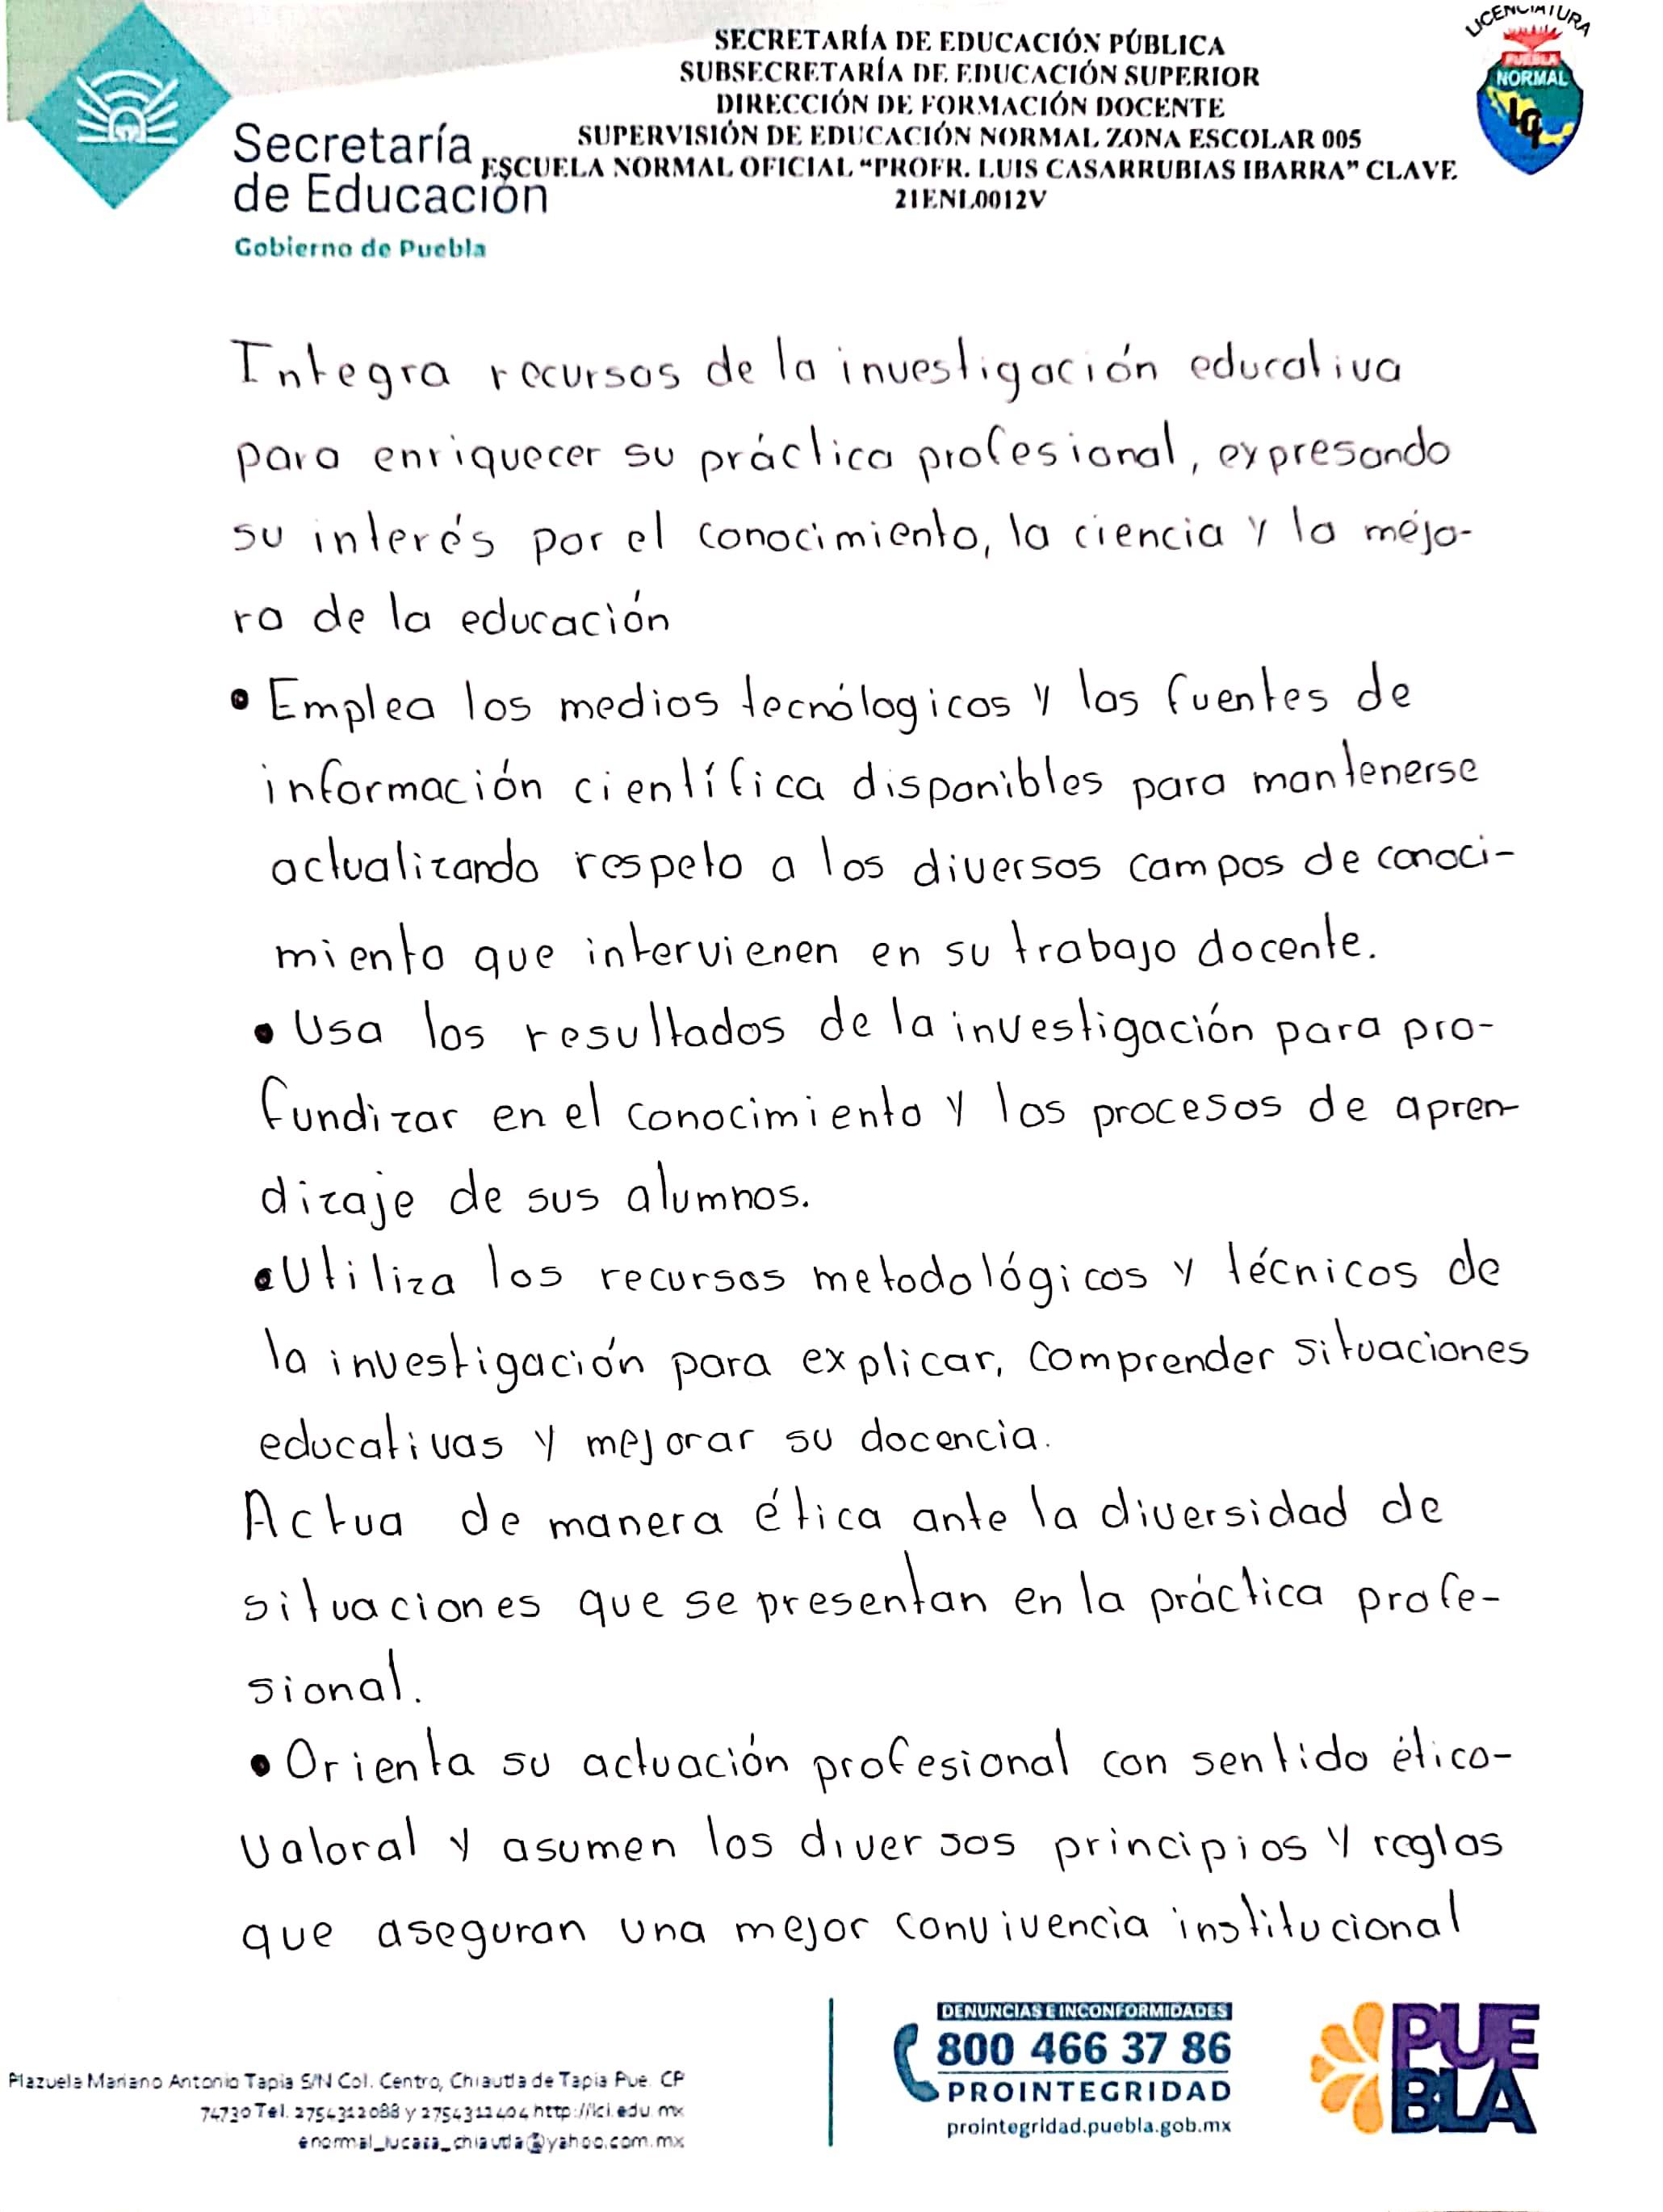 LICENCIATURA
PUEBLA
NORMAL
SECRETARÍA DE EDUCACIÓN PÚBLICA
SUBSECRETARÍA DE EDUCACIÓN SUPERIOR
DIRECCIÓN DE FORMACIÓN DOCENTE
SUPERVISIÓN DE EDUCACIÓN NORMAL ZONA ESCOLAR 005
ESCUELA NORMAL OFICIAL “PROFR. LUIS CASARRUBIAS IBARRA” CLAVE
21ENL0012V
Secretaría
de Educación
Gobierno de Puebla
Integra recursos de la investigación educativa
para enriquecer su práctica profesional, expresando
su interés por el conocimiento, la ciencia y la mejo-
ra de la educación
• Emplea los medios tecnólogicos y las fuentes de
información científica disponibles para mantenerse
actualizando respeto a los diversos campos de conoci-
miento que intervienen en su trabajo docente.
• Usa los resultados de la investigación para pro-
fundizar en el conocimiento y los procesos de apren-
dizaje de sus alumnos.
• Utiliza los recursos metodológicos y técnicos de
la investigación para explicar, comprender situaciones
educativas y mejorar su docencia.
Actua de manera ética ante la diversidad de
situaciones que se presentan en la práctica profe-
sional.
• Orienta su actuación profesional con sentido ético-
valoral y asumen los diversos principios y reglas
que aseguran una mejor convivencia institucional
Plazuela Mariano Antonio Tapia S/N Col. Centro, Chiautla de Tapia Pue. CP
74730 Tel. 2754312088 y 2754311404 http://lci.edu.mx
enormal_lucasa_chiautla@yahoo.com.mx
DENUNCIAS E INCONFORMIDADES
800 466 37 86
PROINTEGRIDAD
prointegridad.puebla.gob.mx
PUE
BLA